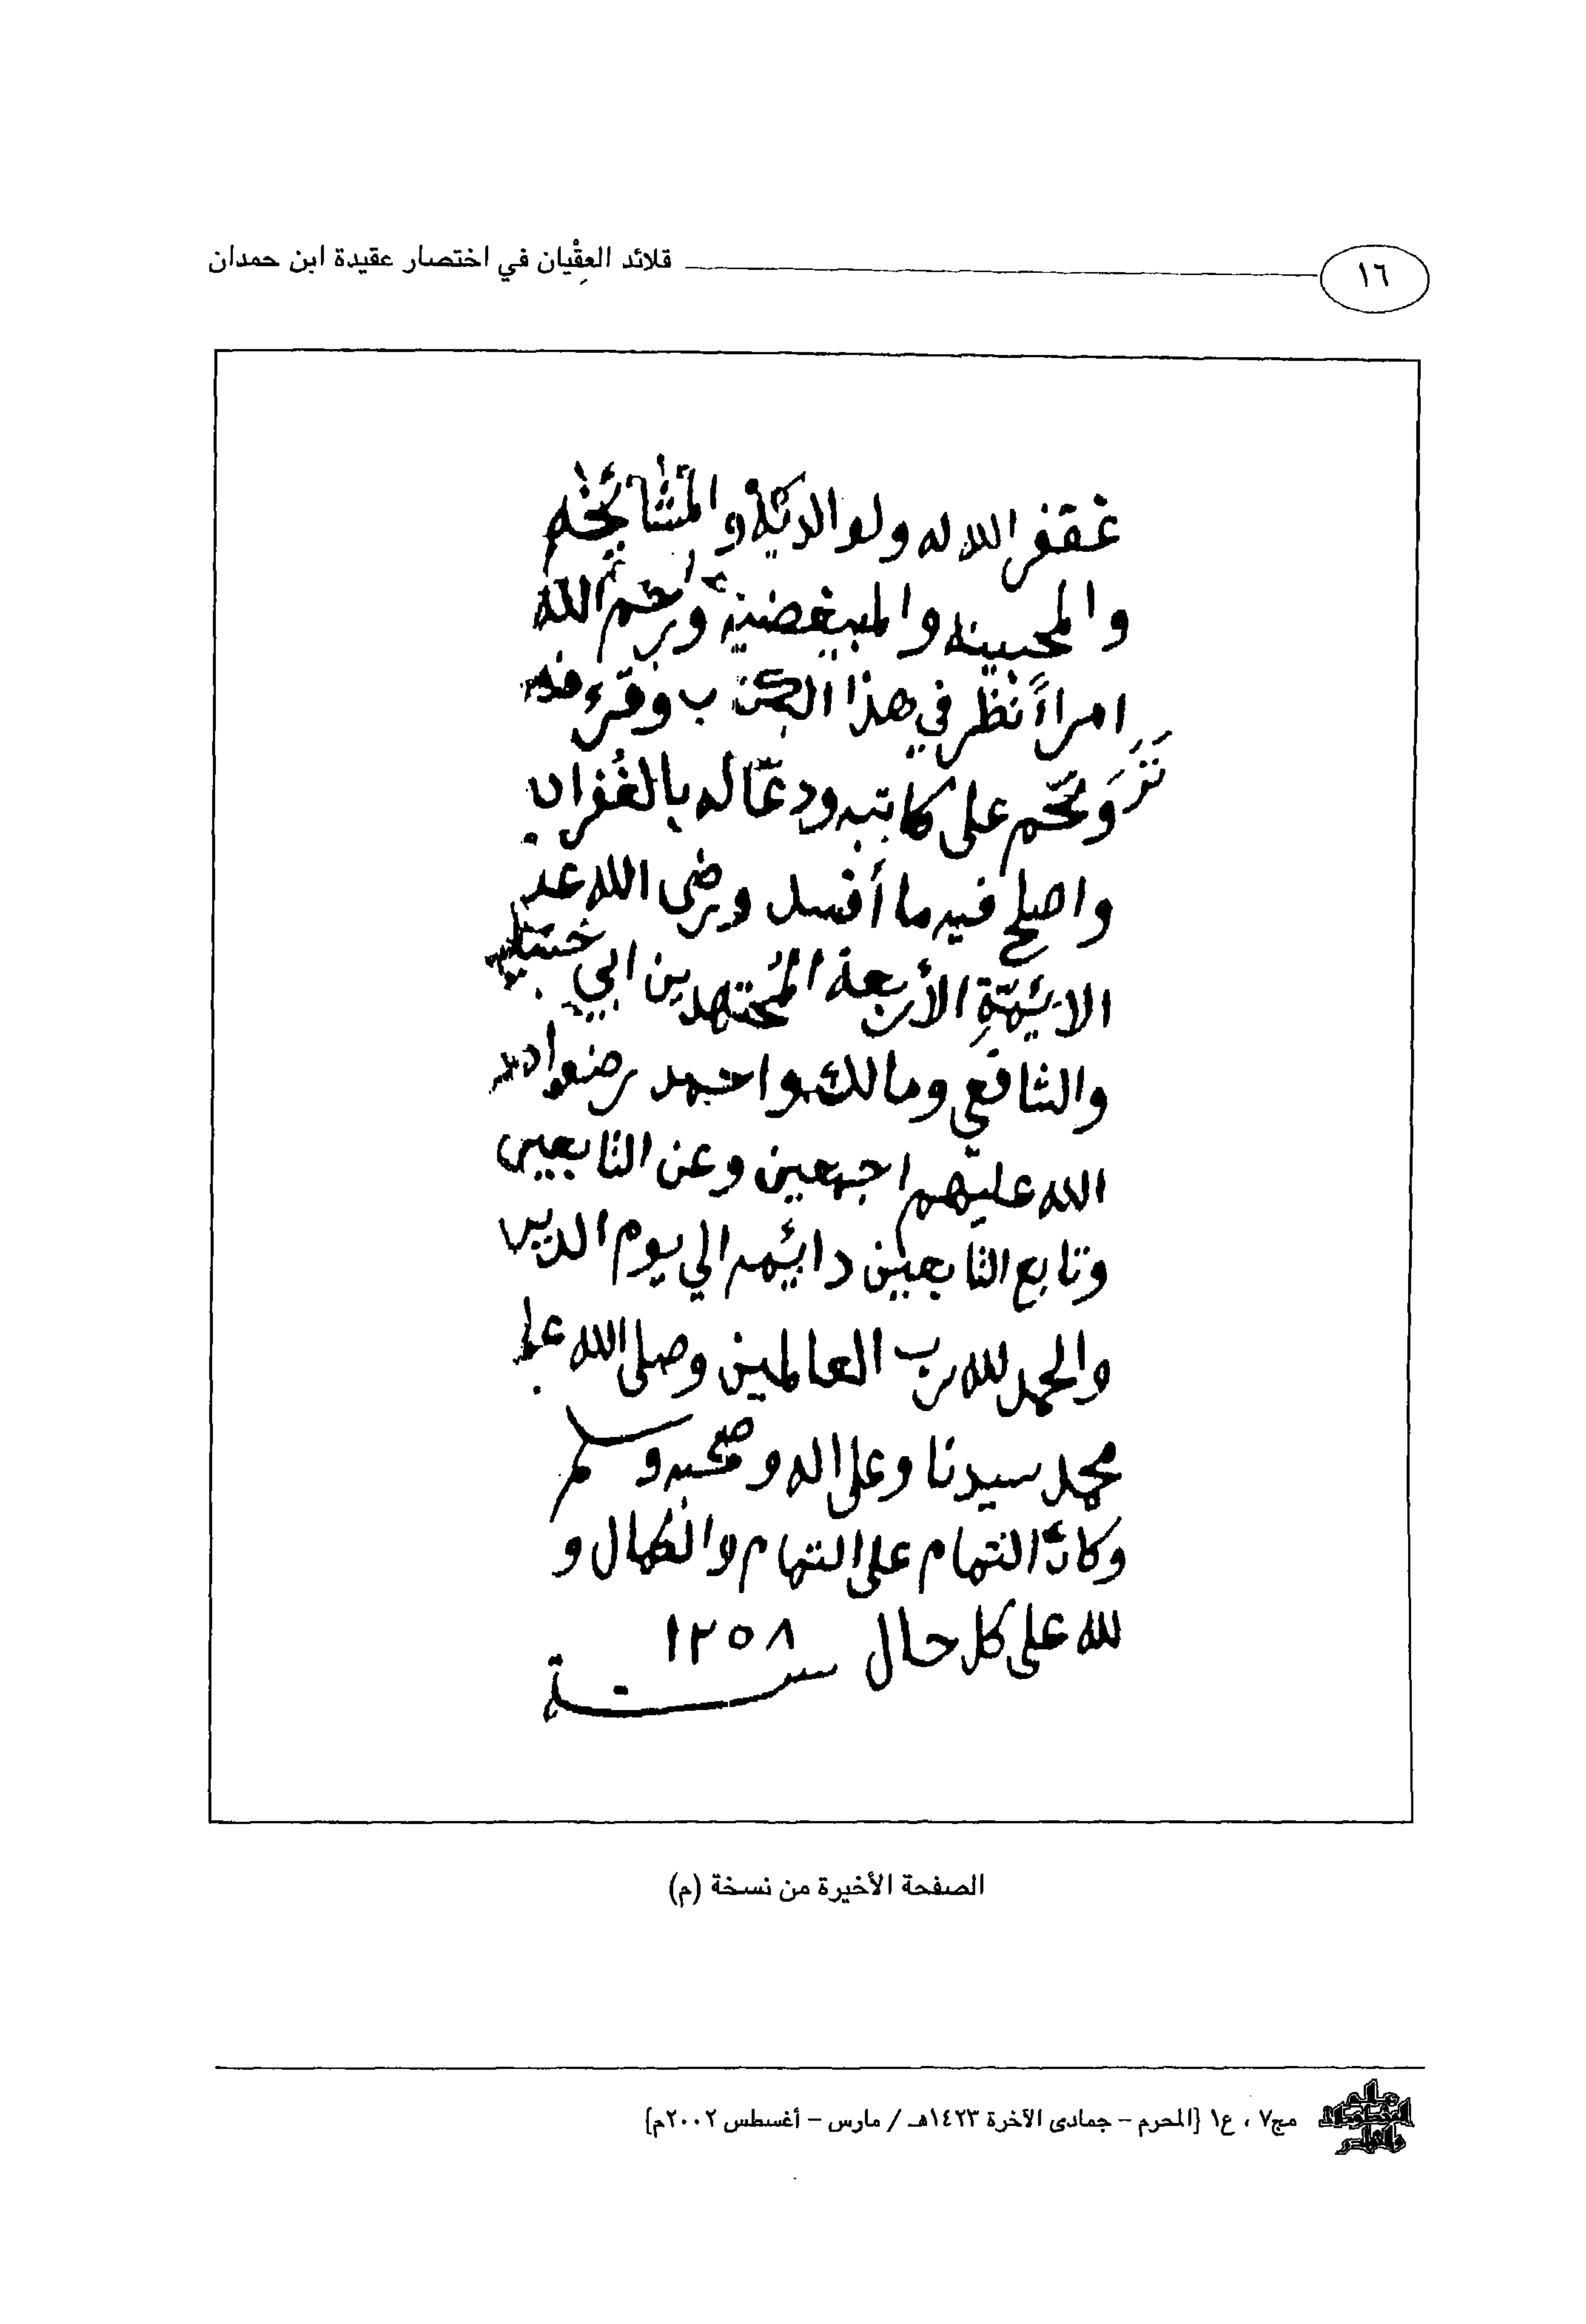 ١٦ قلائد العِقْيان في اختصار عقيدة ابن حمدان
غفر الله له ولوالديه والمشائخه
والمحبينه والمبيغضينه ورحم الله
امراءً نظر في هذا الكتاب وقرء فيه
وترحم على كاتبه ودعا له بالغُفران
واصلح فيه ما أفسد ورضى الله عن
الايئمّةِ الأربعة المُجتهدين ابي حنيفه
والشافعي ومالك واحمد رضوان
الله عليهم اجمعين وعن التابعين
وتابع التابعين دايئما الي يوم الدين
والحمد لله رب العالمين وصلى الله على
محمد سيدنا وعلى اله وصحبه وسلم
وكان التمام على التمام والكمال و
لله على كل حال سنة ١٢٥٨
الصفحة الأخيرة من نسخة (م)
مج٧ ، ع١ {المحرم – جمادى الآخرة ١٤٢٣هـ / مارس – أغسطس ٢٠٠٢م}